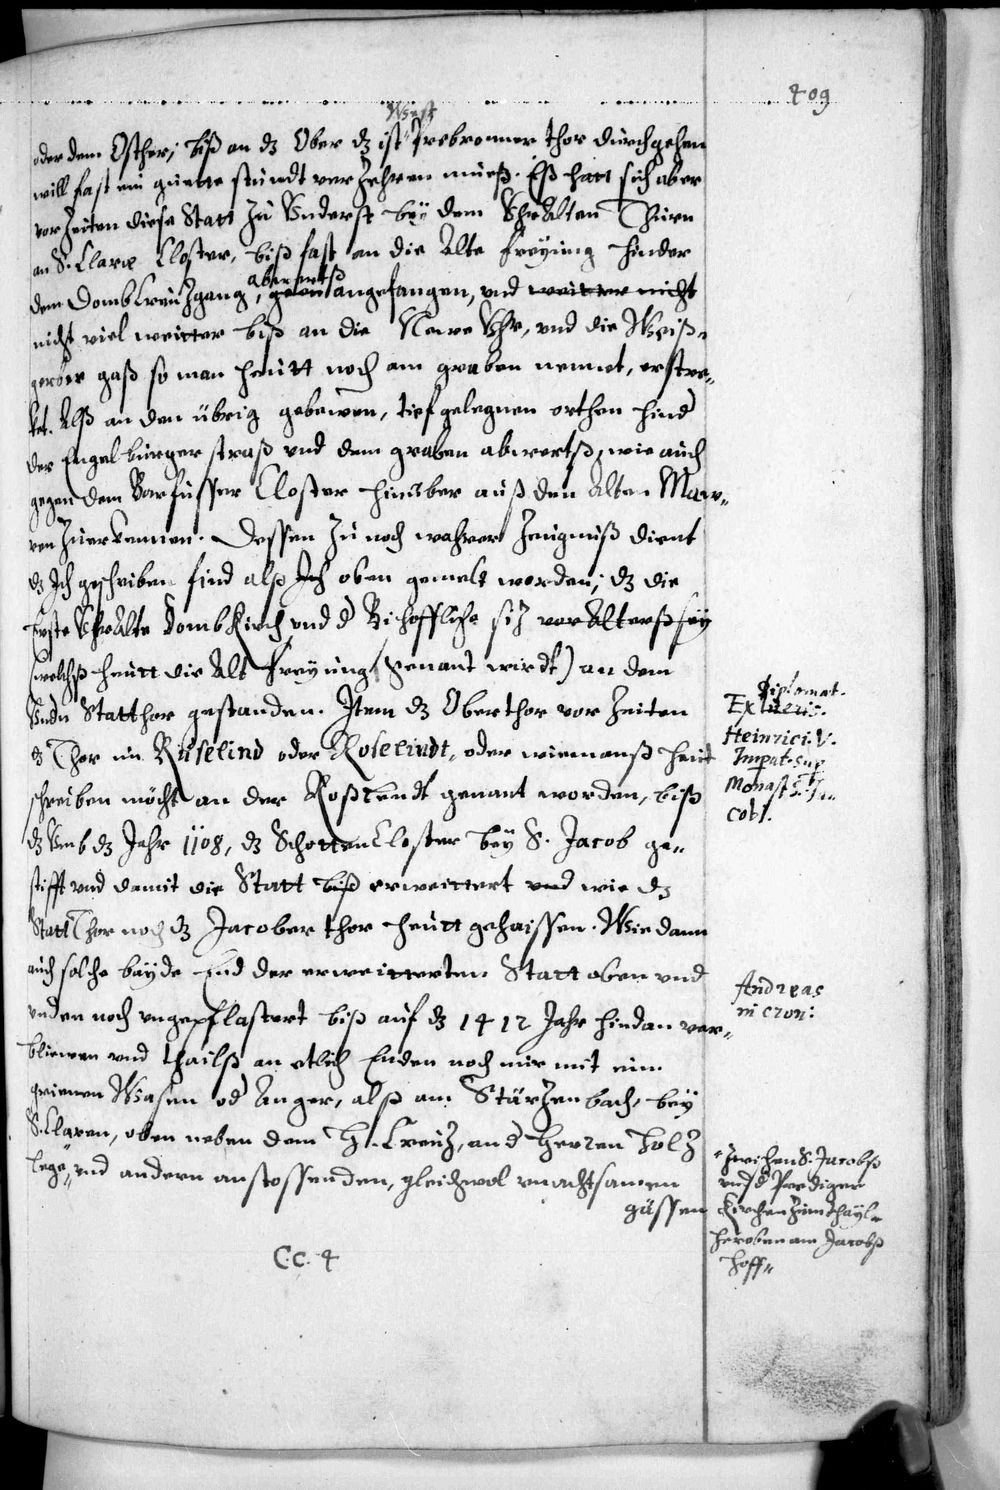 409
West
oder dem Osther, biß an dz Ober dz ist Prebronner thor durchgehen
will fast ein guette stundt verzehren mueß. Eß hatt sich aber
vor Zeiten diese Statt zu Underst bey dem Uhralten Thurn
an S. Claræ Closter, biß fast an die Alte freyung hinder
aberwertß
dem Domb Creuzgang, angefangen, und weitter nicht
nicht viel weitter biß an die Newe Uhr, und die Weiß„
gerber gaß so man heütt noch am graben nennet, erstre„
ket. Alß an den übrig gebewen, tief gelegnen orthen hind
der Engelburger straß und dem graben abwertß, wie auch
gegen dem Barfusser Closter hinüber auß den Alten Maw„
ren Zuerkennen. Dessen zu noch wahrer Zeugniß dient
dz Ich geschriben find alß Ich oben gemelt worden, dz die
Erste Uhralte Dombkirch und d Bischoffliche siz vor Alterß sey
(welchß heütt die Alt freyung genant wirdt) an dem
Undn Statthor gestanden. Item dz Oberthor vor Zeiten
dz Thor im Ruselind oder Roselindt, oder wiemanß heut
schreiben möcht an der Roßlendt genant worden, biß
dz Umb dz Jahr 1108, dz Schotten Closter bey S. Jacob ge„
stifft und damit die Statt biß erweittert und wie dz
Statt Thor noch dz Jacober thor heütt gehaissen. Wie dann
auch solche bayde End der erweitterten Statt oben und
unden noch ungepflastert biß auf dz 1412 Jahr hindan ver„
bliewen und thailß an etlich Enden noch nur mit eim
grienen Wasen od Anger, alß am Stärzenbach, bey
S. Claren, oben neben dem H. Creuz, an d Herren Holz
lege„ und andern anstossenden, gleichwol unachtsamen
gässen
C.c. 4
Diplomat.
Ex literis.
Heinrici. V.
Impat.
Monast S. Ja„
cobi.
Andreas
in cron:
„zwischen S. Jacobß
und d Prediger
Kirchen zum thayl„
heroben am Jacobß
hoff„